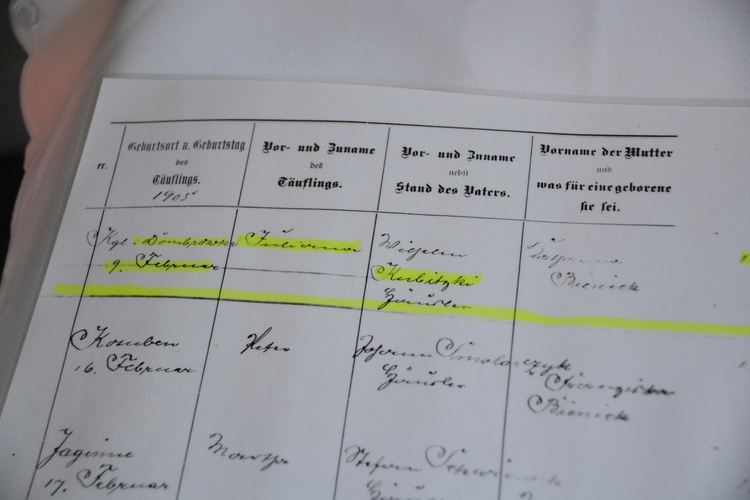 nr.
Geburtsort u. Geburtstag
des
Täuflings.
1905
Vor- und Zuname
des
Täuflings.
Vor- und Zuname
nebst
Stand des Vaters.
Vorname der Mutter
und
was für eine geborene
sie sei.
Kgl. Dombrowka
9. Februar
Juliana
Wilhelm
Kubitzki
Häusler
Bienick
Kossuben
16. Februar
Peter
Johann Smolarczyk
Häusler
Franziska
Bienick
17. Februar
Martha
Stefan